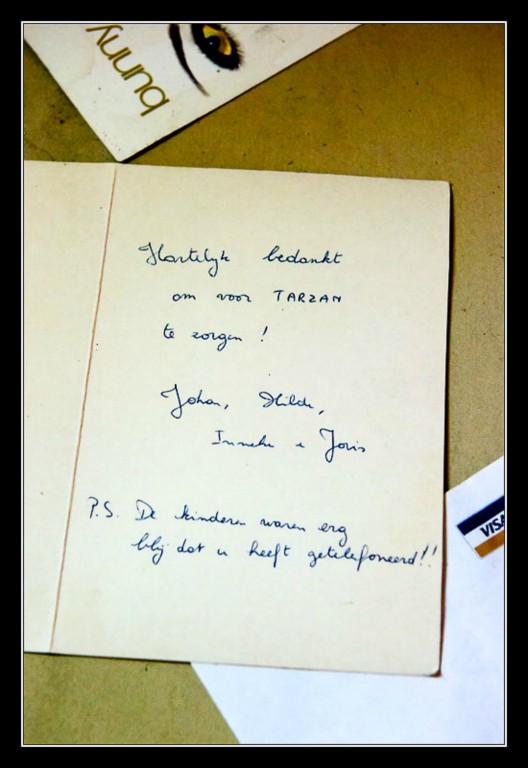 bunny
Hartelijk bedankt
om voor TARZAN
te zorgen !
Johan, Hilde,
Inneke e Joris
P.S. De kinderen waren erg
blij dat u heeft getelefoneerd!!
VISA